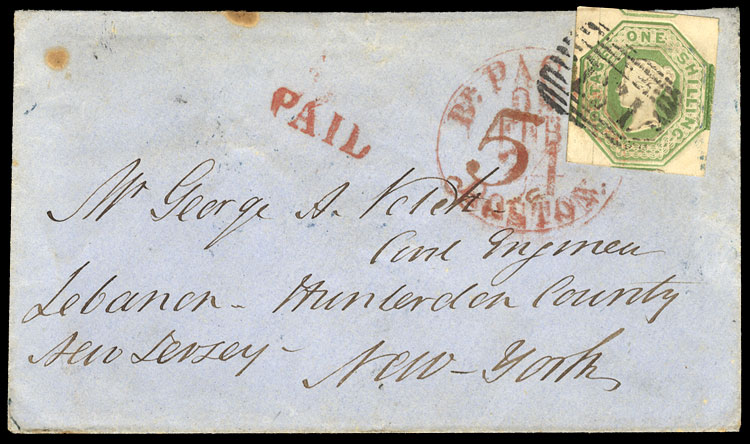 ONE SHILLING
POSTAGE
PAID
Br. PAC
FEB
5
BOSTON.
Mr George A.
Civil Engineer
Lebanon - Hunterdon County
New Jersey -
New-York